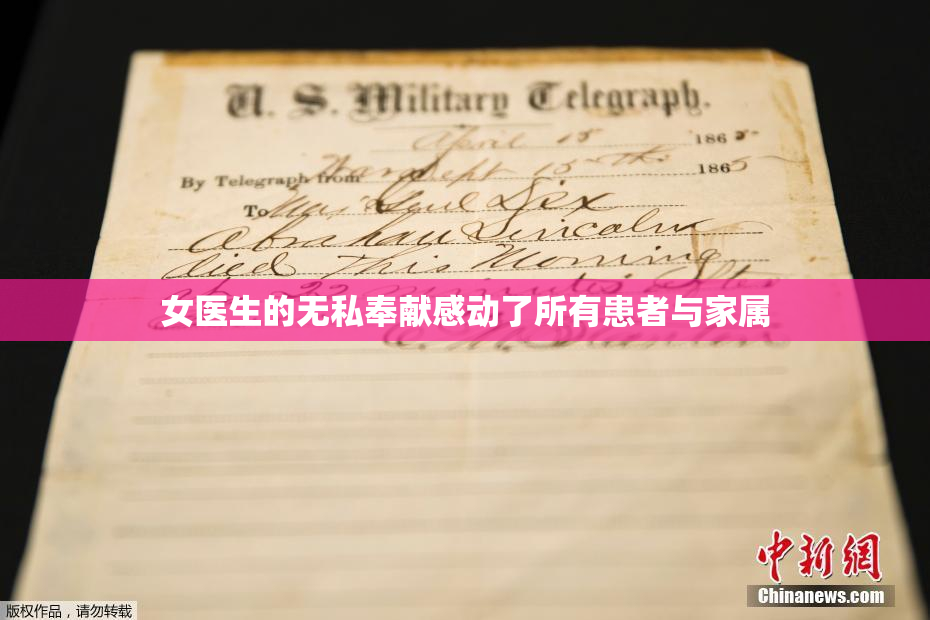 U. S. Military Telegraph.
April 15 1865
By Telegraph from War Dept 15th 1865
To Maj Genl Dix
Abraham Lincoln
died This Morning
at 22 minutes after
女医生的无私奉献感动了所有患者与家属
E. M. Stanton
中新网
Chinanews.com
版权作品，请勿转载